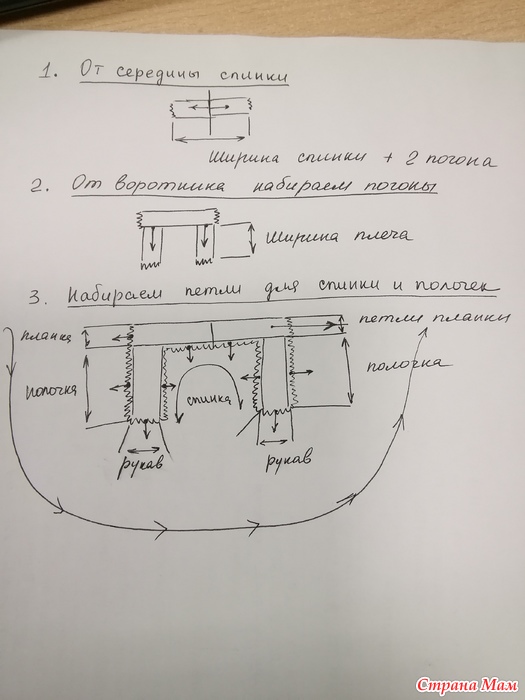 1. От середины спинки
ширина спинки + 2 погона
2. От воротника набираем погоны
ширина плеча
3. Набираем петли для спинки и полочек
планка
петли планки
полочка
полочка
спинка
рукав
рукав
Страна Мам